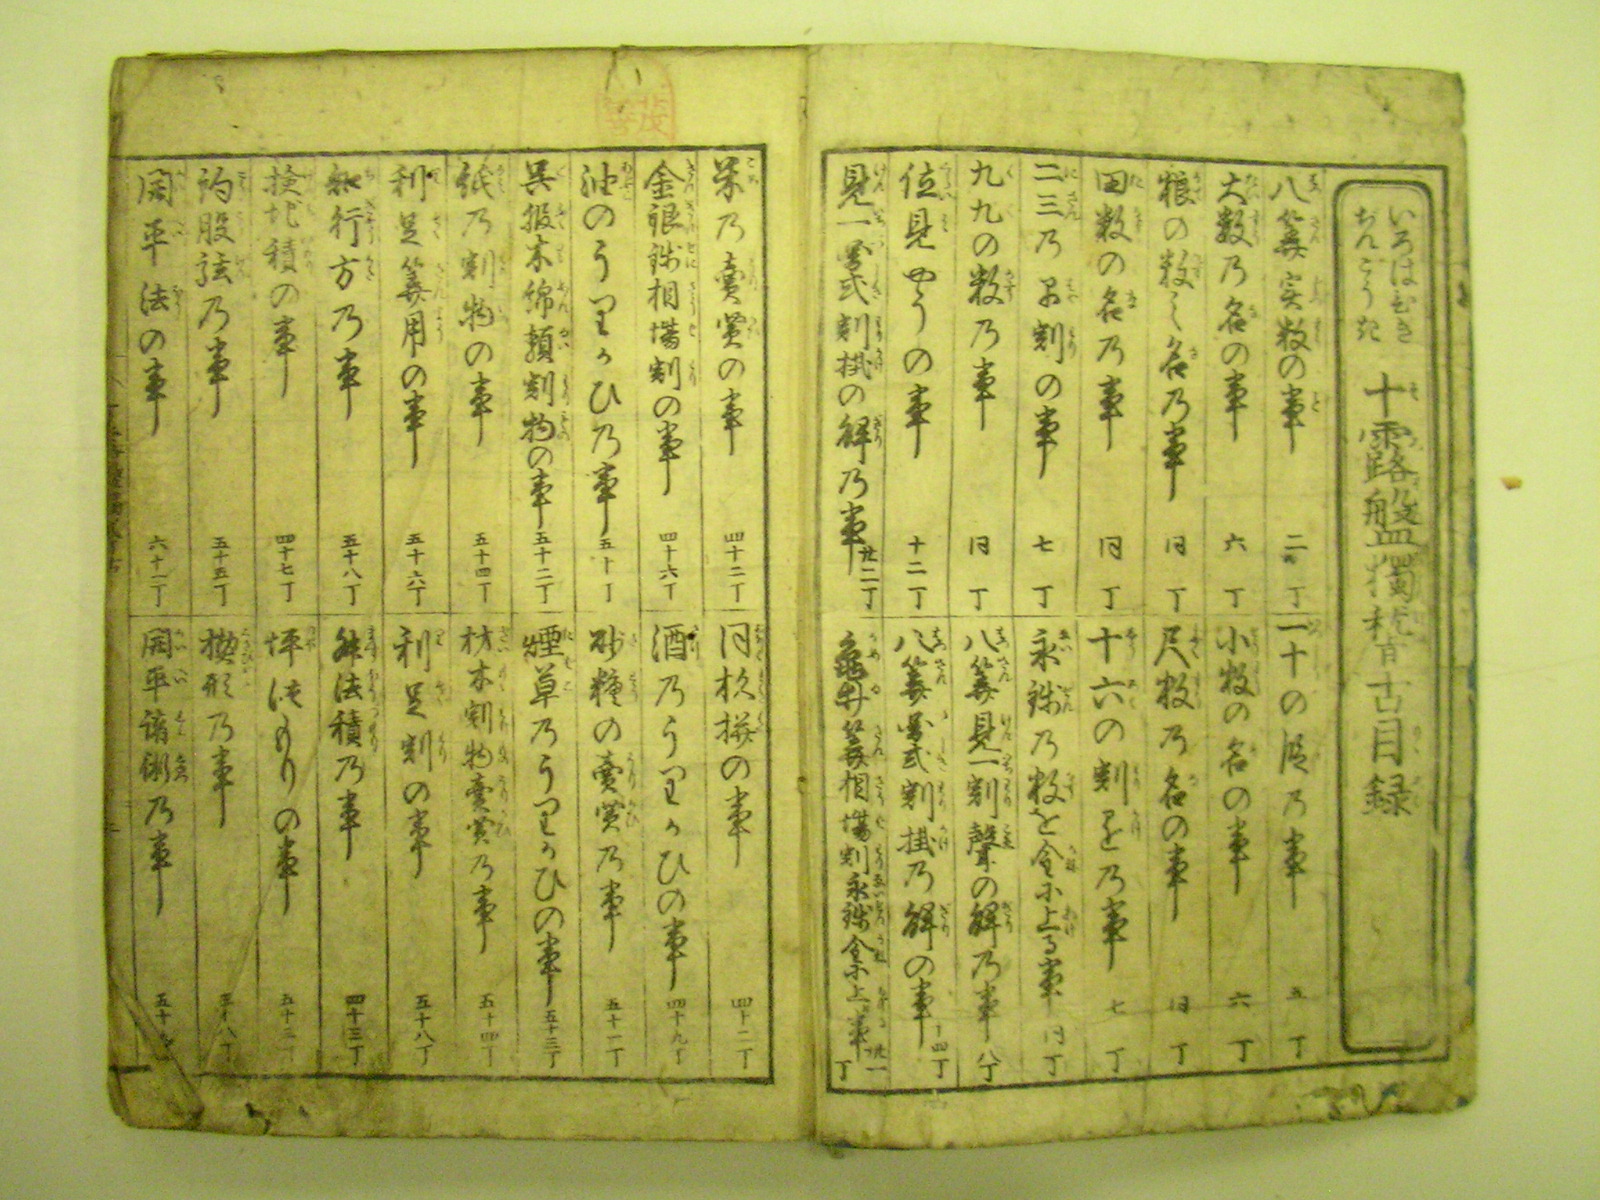 いろはびき
ぢんこうき
十露盤獨稽古目録
八算実数の事 二丁
一十の位乃事 五丁
大数乃名の事 六丁
小数の名の事 六丁
粮の数の名乃事 同丁
尺数乃名の事 同丁
田数の名乃事 同丁
十六の割を乃事 七丁
二三乃早割の事 七丁
永銭乃数を金に上る事 同丁
九九の数乃事 同丁
八算見一割聲の解乃事 八丁
位見やうの事 十二丁
八算圖式割掛乃解の事 十四丁
見一圖式割掛の解乃事 廿二丁
亀井算相場割永銭金に上る事 廿一丁
米乃賣買の事 四十二丁
同杦拼の事 四十二丁
金銀銭相場割の事 四十六丁
酒乃うりかひの事 四十九丁
油のうりかひ乃事 五十丁
砂糖の賣買乃事 五十一丁
呉服木綿類割物の事 五十二丁
煙草乃うりかひの事 五十三丁
紙乃割物の事 五十四丁
材木割物賣買乃事 五十四丁
利足算用の事 五十六丁
利足割の事 五十八丁
知行方乃事 五十八丁
舛法積乃事 四十三丁
検地積の事 四十七丁
坪つもりの事 五十二丁
鈎股弦乃事 五十五丁
楔形乃事
開平法の事 六十一丁
開平諸術乃事